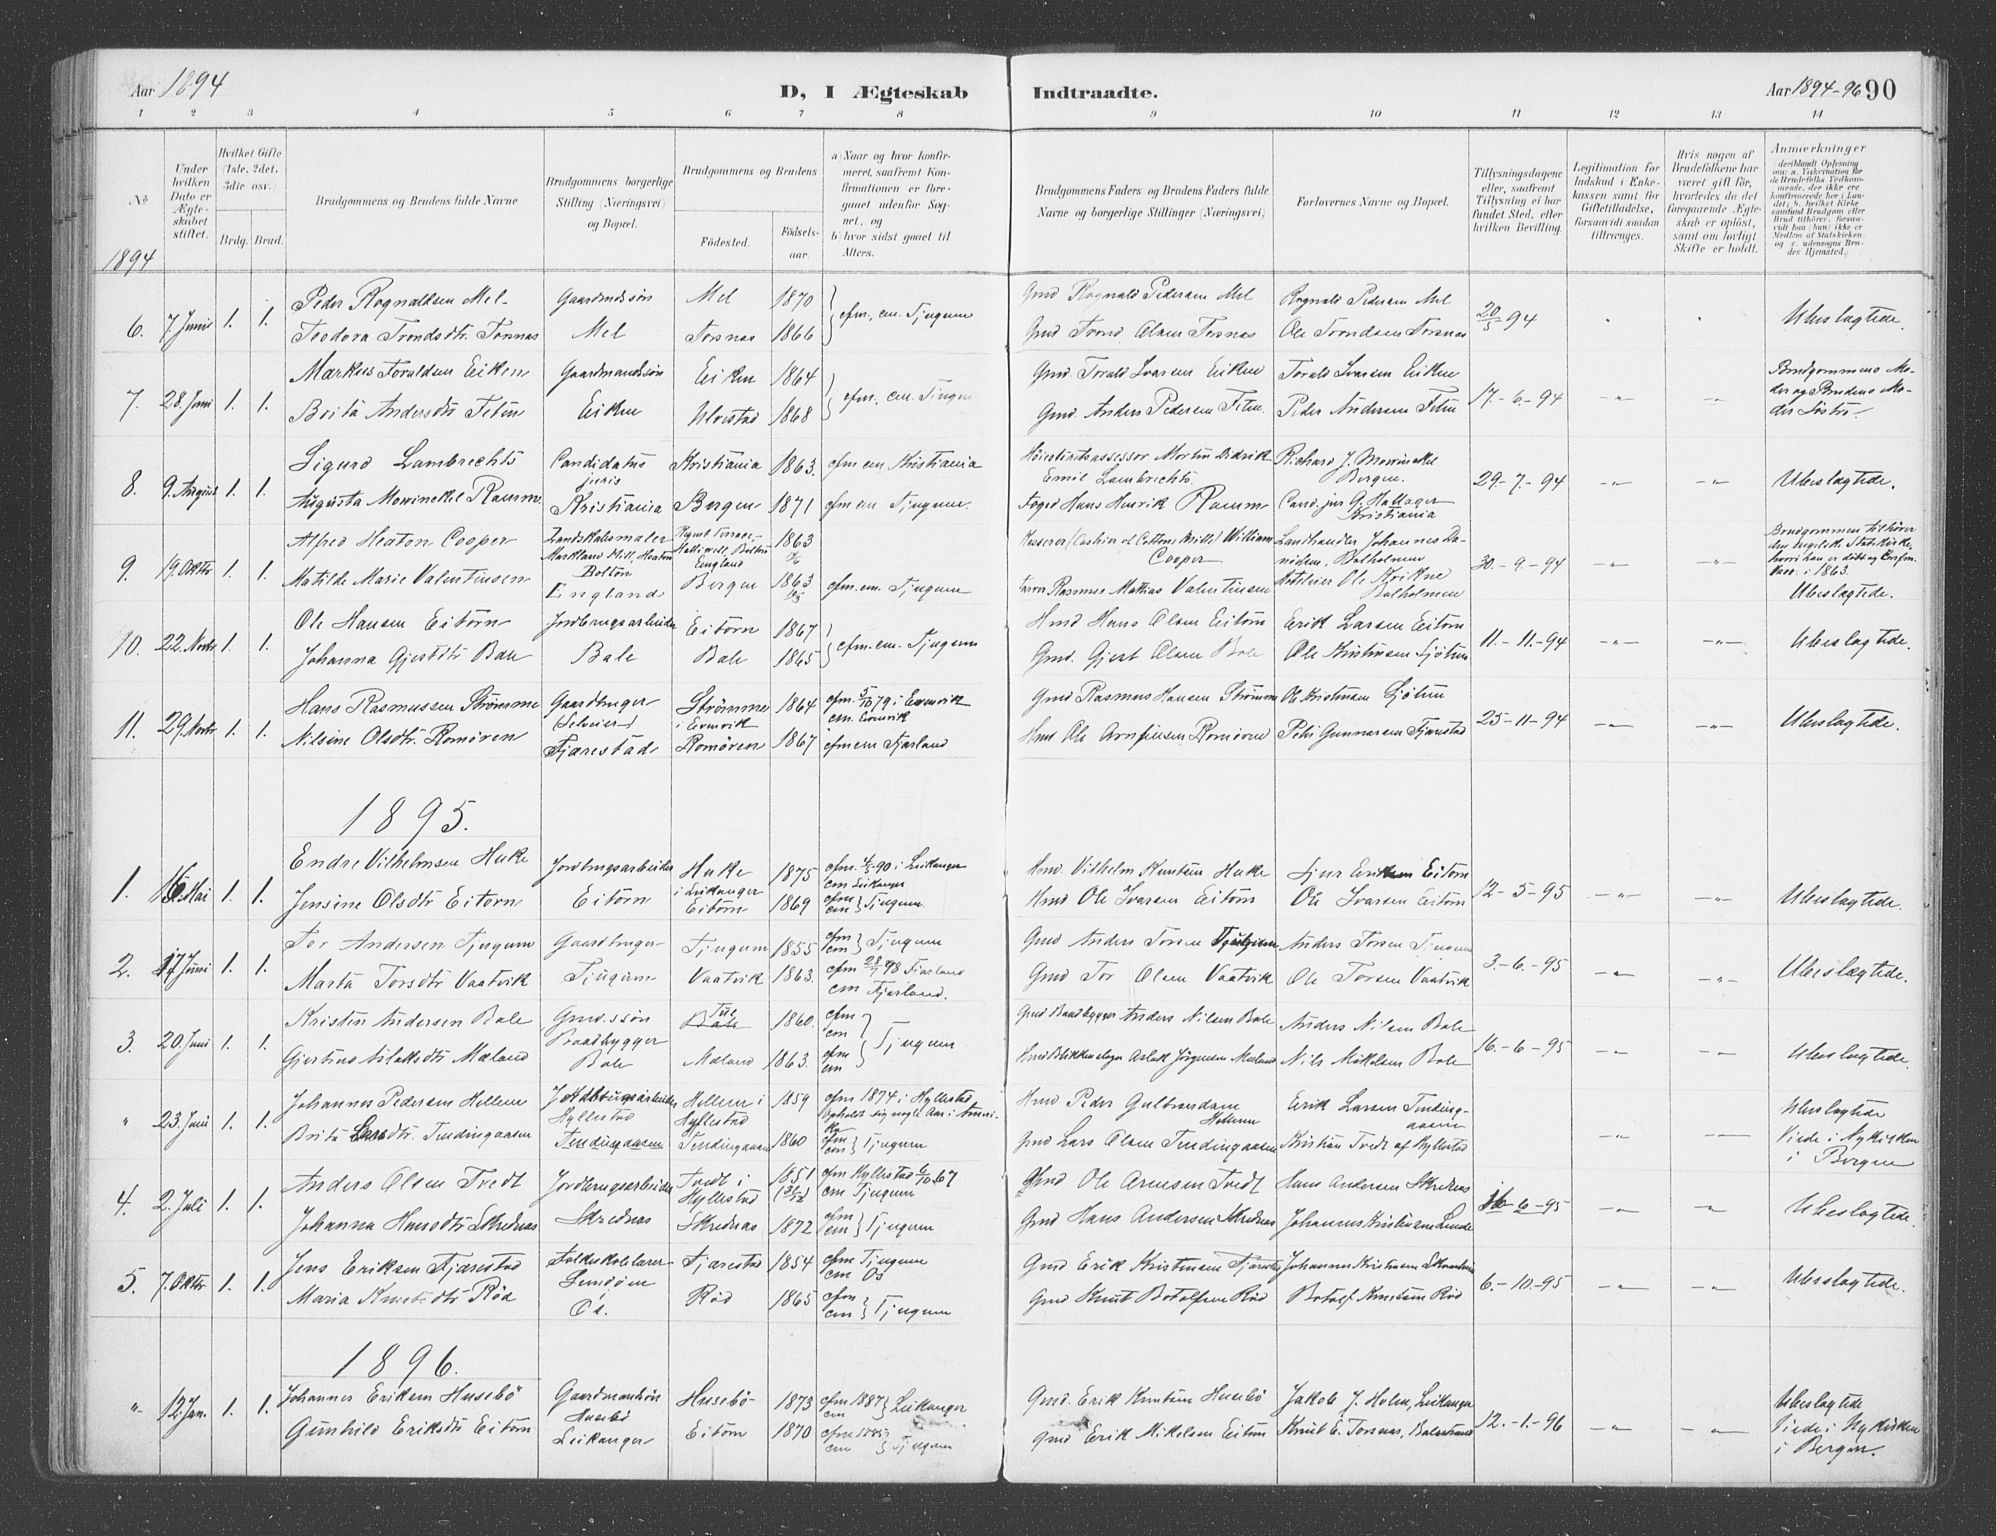 Aar 1894
D, I Ægteskab Indtraadte.
Aar 1894-96 90
1 2 3 4 5 6 7 8 9 10 11 12 13 14
No
Under hvilken Dato er Ægteskabet stiftet.
Hvilket Gifte (1ste, 2det, 3die osv.)
Brdg. Brud.
Brudgommens og Brudens fulde Navne
Brudgommens borgerlige Stilling (Næringsvei) og Bopæl.
Brudgommens og Brudens
Fødested. Fødselsaar.
a) Naar og hvor konfirmeret, saafremt Konfirmationen er foregaaet udenfor Sognet, og
b) hvor sidst gaaet til Alters.
Brudgommens Faders og Brudens Faders fulde Navne og borgerlige Stillinger (Næringsvei)
Forlovernes Navne og Bopæl.
Tillysningsdagene eller, saafremt Tillysning ei har fundet Sted, efter hvilken Bevilling.
Legitimation for Indskud i Enkekassen samt for Giftetilladelse, forsaavidt saadan tiltrænges.
Hvis nogen af Brudefolkene har været gift før, hvorledes da det foregaaende Ægteskab er opløst, samt om lovligt Skifte er holdt.
Anmærkninger
1894
6. 7. Juni 1. 1. Peder Rognaldsen Mel Gaardmdssøn Mel 1870 cfm., cm. Tjugum Gmd Rognald Pedersen Mel Rognald Pedersen Mel 20/5 94 Ubeslagtede.
Teodora Trondsdtr. Torsnas Mel Torsnas 1866 Gmd Trond Olsen Torsnas Ole Trondsen Torsnas
7. 28. Juni 1. 1. Markus Toraldsen Eiken Gaardmandssøn Eiken 1864 cfm., cm. Tjugum Gmd Torald Ivarsen Eiken Torald Ivarsen Eiken 17.-6.-94 Brudgommens Moder og Brudens Moder Søstre.
Brita Andersdtr. Fetun Eiken Ulvestad 1868 Gmd Anders Pedersen Fetun. Peder Andersen Fetun
8. 9. August 1. 1. Sigurd Lambrechts Candidatus juris Kristiania 1863. cfm cm Kristiania Høiestretsassessor Morten Didrik Emil Lambrechts. Richard J. Mowinckel Bergen. 29.-7.-94 Ubeslagtede.
Augusta Mowinckel Ramm. Kristiania Bergen 1871 cfm cm Tjugum. Foged Hans Henrik Ramm Cand. jur G. Hallager Kristiania
9. 19. Oktbr 1. 1. Alfred Heaton Cooper Landskabsmaler Markland Hill, Heaton Bolton Regent Terrace, Halliwell, Bolton England 1863 Kasserer (Cashier of Cotton Mill) William Cooper Landhandler Johannes Danielsen, Balholmen 30.-9.-94 Brudgommen tilhører den engelsk Statskirke, hvori han er døbt
Matilde Marie Valentinsen England Bergen 1863 cfm. cm. Tjugum Rasmus Mathias Valentinsen Hotelleier Ole Kvikne Balholmen Ubeslagtede.
10. 22. Novbr 1. 1. Ole Hansen Eitorn Jordbrugsarbeider Eitorn 1867 cfm. cm. Tjugum Hmd Hans Olsen Eitorn Erik Larsen Eitorn 11.-11.-94 Ubeslagtede.
Johanna Gjertsdtr. Bale Bale Bale 1865 Gmd. Gjert Olsen Bale Ole Kristensen Sjøtun
11. 29. Novbr 1. 1. Hans Rasmussen Strømme Gaardbruger (Selveier) Strømme i Evenvik 1864 cfm 5/10 79 i Evenvik cm. Evenvik Gmd Rasmus Hansen Strømme Ole Kristensen Sjøtun 25-11-94 Ubeslagtede.
Nilsine Olsdtr. Romøren Fjærestad Romøren 1867 cfm cm Fjærland Hmd Ole Arnfinsen Romøren Peder Gunnarsen Fjærestad
1895.
1. 16. Mai 1. 1. Endre Vilhelmsen Huke Jordbrugsarbeider Huke i Leikanger 1875 cfm. 4/5 90 i Leikanger cm Leikanger Hmd. Vilhelm Knutsen Huke Sjur Eriksen Eitorn 12-5-95 Ubeslagtede.
Jensine Olsdtr Eitorn Eitorn Eitorn 1869 cfm cm Tjugum. Hmd Ole Ivarsen Eitorn Ole Ivarsen Eitorn
2. 17 Juni 1. 1. Tor Andersen Tjugum Gaardbruger Tjugum 1855 cfm cm Tjugum Gmd Anders Torsen Tjugum Anders Torsen Tjugum 3.-6.-95 Ubeslægtede.
Marta Torsdtr Vaatvik Tjugum Vaatvik 1863. cfm 28/7 78 Fjærland cm Fjærland. Gmd Tor Olsen Vaatvik Ole Torsen Vaatvik
3. 20. Juni 1. 1. Kristen Andersen Bale Gmdssøn Baadbygger Tue Bale 1860. cfm cm Tjugum Gmd Baadbygger Anders Nilsen Bale Anders Nilsen Bale 16.-6.-95 Ubeslagtede.
Gjertine Aslaksdtr. Mæland Bale Mæland 1863. cfm cm Aslak Jørgensen Mæland Nils Mikelsen Bale
" 23. Juni 1. 1. Johannes Pedersen Hellem Jordbrugsarbeider Hyllestad Hellem i Hyllestad 1859 cfm 1874 i Hyllestad opholdt sig nogle Aar i Amerika Hmd Peder Gulbrandsen Hellem Erik Larsen Tendingaasen Ubeslagtede
Brita Larsdtr. Tendingaasen Tendingaasen Tendingaasen 1860 cfm cm Tjugum Gmd Lars Olsen Tendingaasen Kristian Tvedt af Hyllestad Viede i Nykirken i Bergen
4. 2. Juli 1. 1. Anders Olsen Tvedt Jordbrugsarbeider Tvedt i Hyllestad 1851 cfm Hyllestad 6/10 67 cm Tjugum Gmd Ole Arnesen Tvedt Hans Andersen Skrednas 16-6-95 Ubeslagtede.
Johanna Hansdtr. Skrednas Skrednas Skrednas 1872 cfm cm Tjugum Gmd Hans Andersen Skrednas Johannes Kristensen Lunde
5. 7. Oktbr 1. 1. Jens Eriksen Fjærestad Folkeskolelærer Lunden Fjærestad 1854 cfm Tjugum cm Os Gmd Erik Kristensen Fjærestad Johannes Kristensen 6.-10.-95 Ubeslagtede.
Maria Knutsdtr Rød Os. Rød 1865 cfm cm Tjugum Gmd Knut Botolfsen Rød Botolf Knutsen Rød
1896.
" 12. Jan. 1. 1. Johannes Eriksen Husebø Gaardmandssøn Husebø Husebø 1873 cfm 1887 cm Leikanger Gmd. Erik Knutsen Husebø Jakob J. Holen, Leikanger 12.-1.-96 Ubeslagtede
Gunhild Eriksdtr Eitorn Leikanger Eitorn 1870 cfm 1885 cm Tjugum Gmd Erik Mikelsen Eitorn Knut E. Torsnes, Balestrand Viede i Nykirken i Bergen.